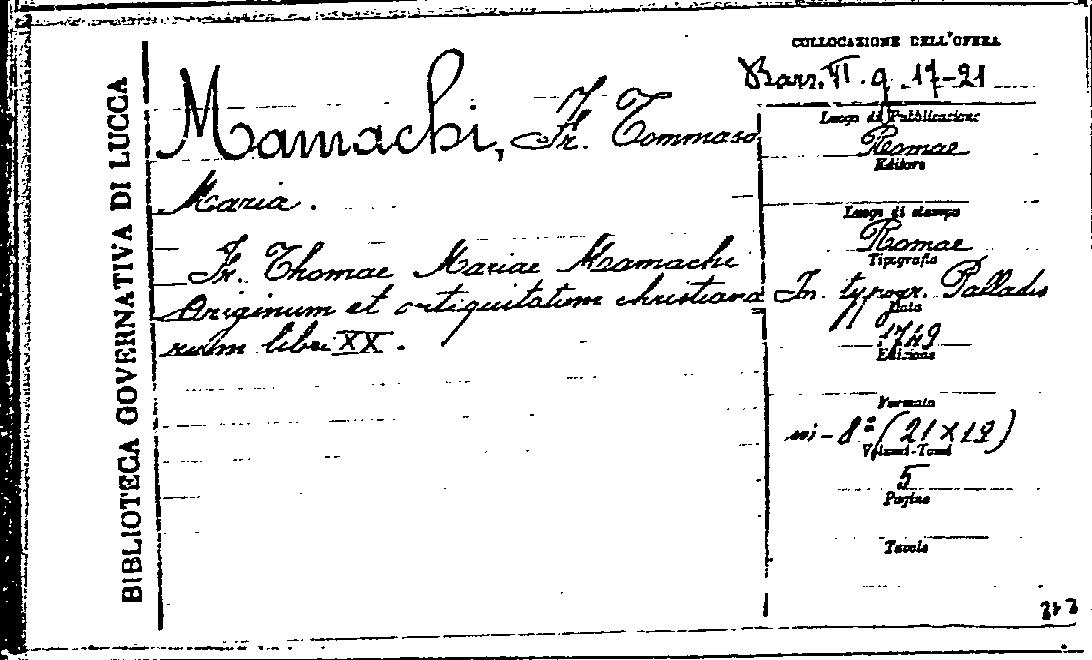 BIBLIOTECA GOVERNATIVA DI LUCCA
Mamachi, Fr. Tommaso
Maria.
Fr. Thomae Mariae Mamachi
Originum et antiquitatum christiana
rum libri XX.
COLLOCAZIONE DELL'OPERA
VI. g. 17-21
Luogo di Pubblicazione
Romae
Editore
Luogo di stampa
Romae
Tipografia
In typogr. Palladis
Data
1749
Edizione
Formato
in-8º (21×12)
Volumi-Tomi
5
Pagine
Tavole